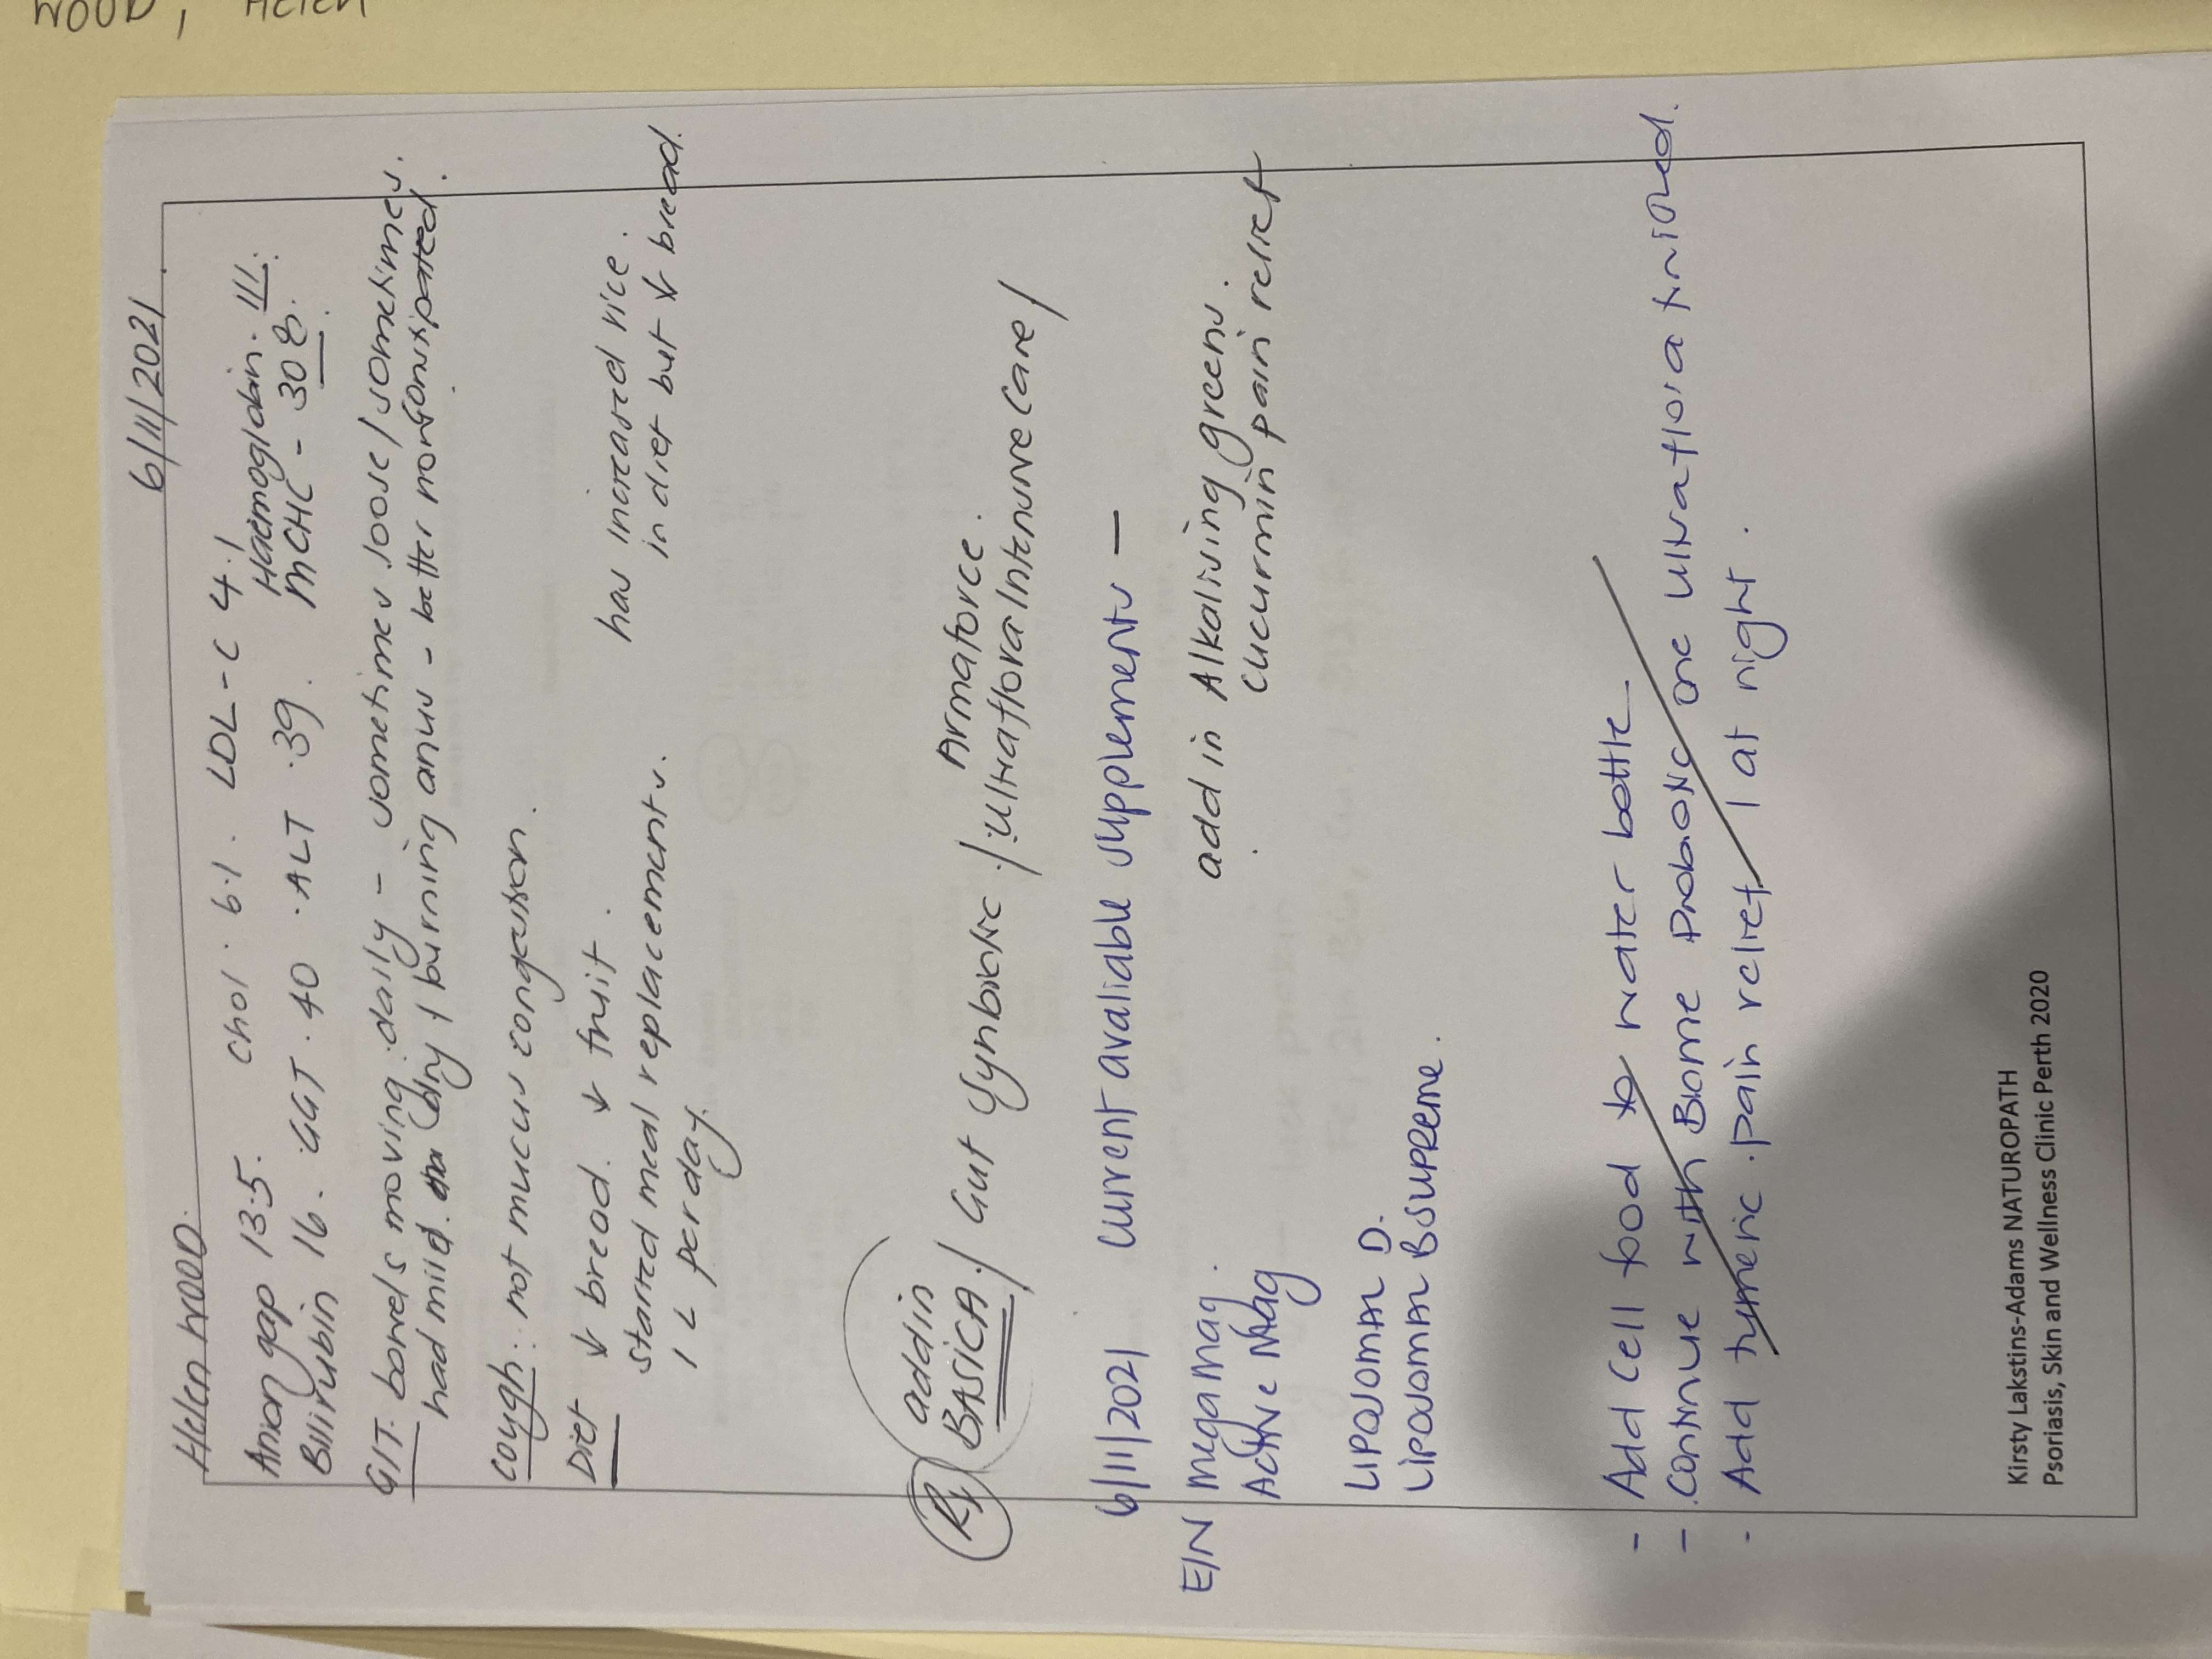 WOOD, Helen
6/11/2021
Helen WOOD.
Anion gap 13.5. Chol. 6.1. LDL-C 4.1
Bilirubin 16. GGT. 40. ALT. 39. Haemoglobin. 111.
MCHC - 308.
GIT. bowels moving daily - sometimes loose/sometimes.
had mild (dry / burning anus - better non constipated.
cough: not mucus congestion.
Diet ↓ bread. ↓ fruit. has increased rice.
in diet but ↓ bread.
started meal replacements.
1 per day.
Rx add in Armaforce.
BASICA./ Gut Synbiotic./ultraflora Intensive Care/
6/11/2021 current avaliable supplements —
E/N megamag. add in Alkalising greens.
Active Mag . Cucurmin pain relief
LIPOSOMAL D.
LIPOSOMAL BSUPREME.
- Add Cell food to water bottle
- Continue with Biome Probiotic one ultraflora finished.
- Add tumeric. pain relief 1 at night.
Kirsty Lakstins-Adams NATUROPATH
Psoriasis, Skin and Wellness Clinic Perth 2020